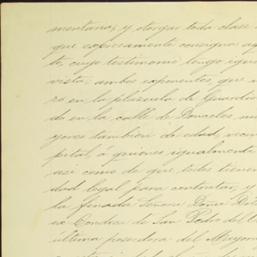 mentarias, y otorgar toda clase
que especificamente consigna a
te, cuyo testimonio tengo igua
vista; ambos exponentes que
ro en la plazuela de Guardio
do en la calle de Donceles, 
yores tambien de edad, vecin
pital, á quienes igualmente
así como de que todos tienen
dad legal para contratar, y
la finada Señora Doña
ex Condesa de San Pedro del
última poseedora del Mayora